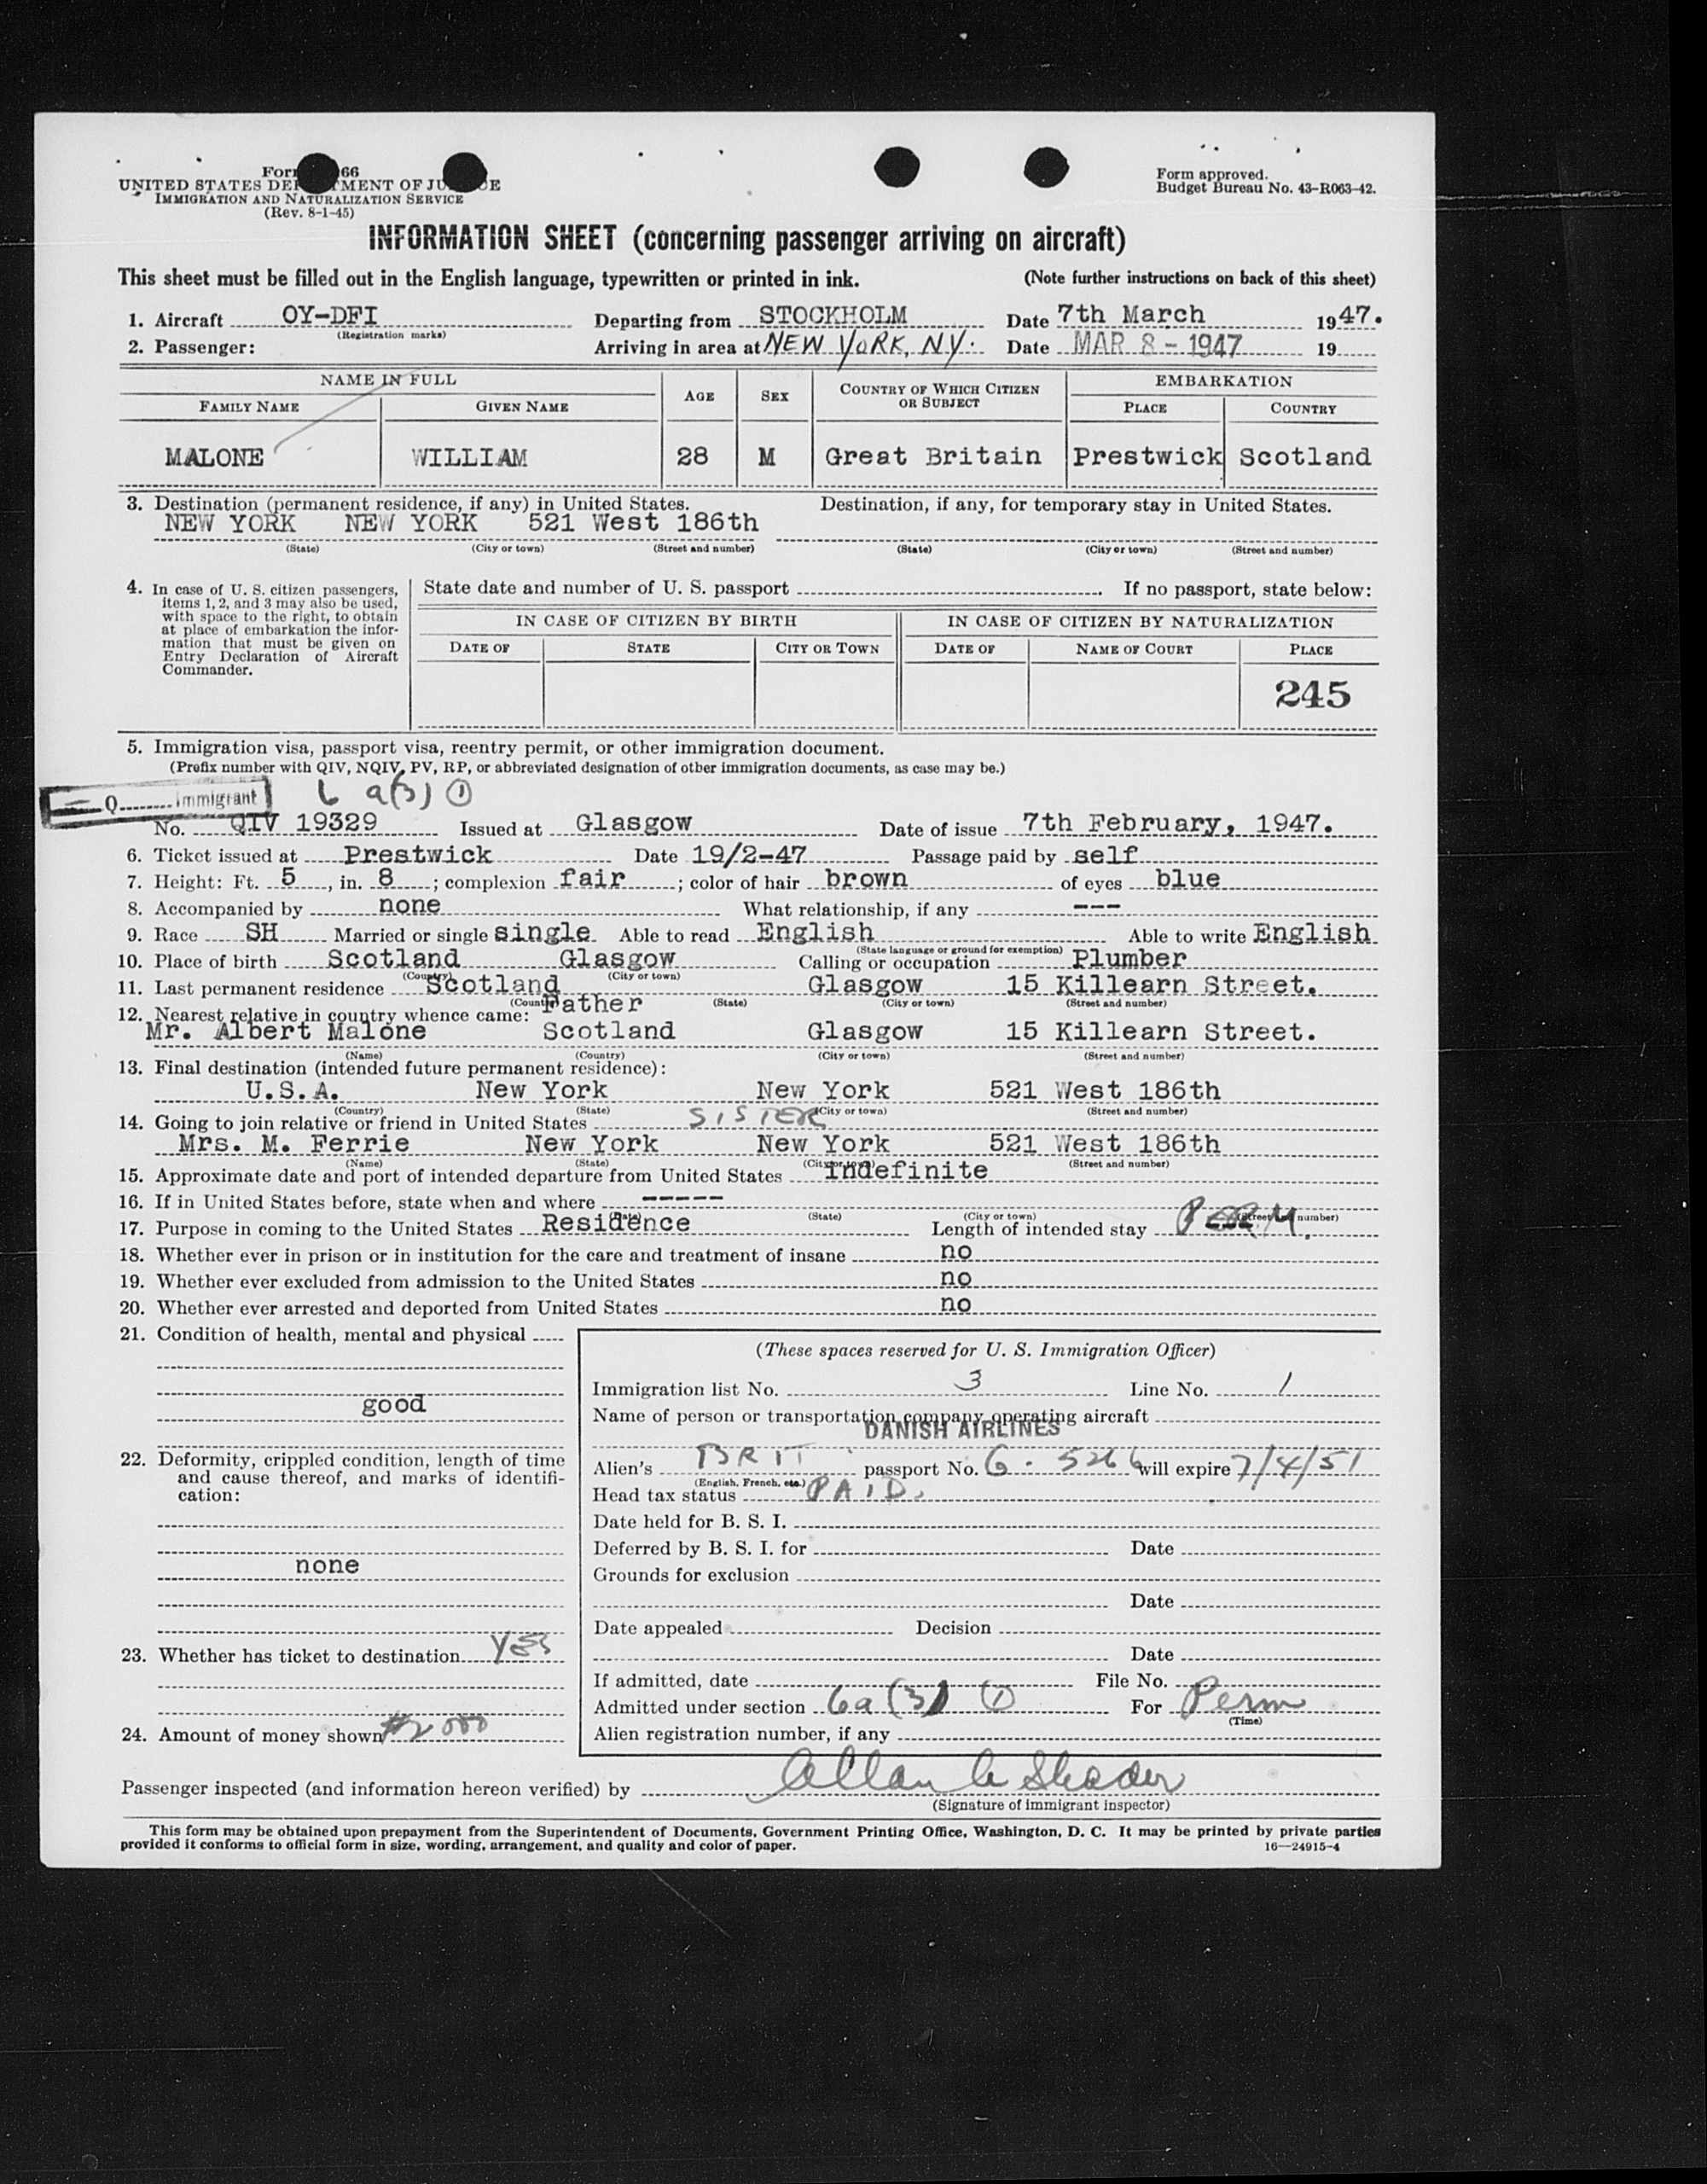 Form 66
UNITED STATES DEPARTMENT OF JUSTICE
IMMIGRATION AND NATURALIZATION SERVICE
(Rev. 8-1-45)
Form approved.
Budget Bureau No. 43-R063-42.
INFORMATION SHEET (concerning passenger arriving on aircraft)
This sheet must be filled out in the English language, typewritten or printed in ink. (Note further instructions on back of this sheet)
1. Aircraft OY-DFI Departing from STOCKHOLM Date 7th March 1947.
(Registration marks)
2. Passenger: Arriving in area at NEW YORK, NY. Date MAR 8 - 1947 19
NAME IN FULL AGE SEX COUNTRY OF WHICH CITIZEN OR SUBJECT EMBARKATION
FAMILY NAME GIVEN NAME PLACE COUNTRY
MALONE WILLIAM 28 M Great Britain Prestwick Scotland
3. Destination (permanent residence, if any) in United States. Destination, if any, for temporary stay in United States.
NEW YORK NEW YORK 521 West 186th
(State) (City or town) (Street and number) (State) (City or town) (Street and number)
4. In case of U. S. citizen passengers, items 1, 2, and 3 may also be used, with space to the right, to obtain at place of embarkation the information that must be given on Entry Declaration of Aircraft Commander.
State date and number of U. S. passport . If no passport, state below:
IN CASE OF CITIZEN BY BIRTH IN CASE OF CITIZEN BY NATURALIZATION
DATE OF STATE CITY OR TOWN DATE OF NAME OF COURT PLACE
245
5. Immigration visa, passport visa, reentry permit, or other immigration document.
(Prefix number with QIV, NQIV, PV, RP, or abbreviated designation of other immigration documents, as case may be.)
Q Immigrant 6 a(3) 1
No. QIV 19329 Issued at Glasgow Date of issue 7th February, 1947.
6. Ticket issued at Prestwick Date 19/2-47 Passage paid by self
7. Height: Ft. 5, in. 8; complexion fair; color of hair brown of eyes blue
8. Accompanied by none What relationship, if any ---
9. Race SH Married or single single Able to read English Able to write English
(State language or ground for exemption)
10. Place of birth Scotland Glasgow Calling or occupation Plumber
(Country) (City or town)
11. Last permanent residence Scotland Glasgow 15 Killearn Street.
(Country) (State) (City or town) (Street and number)
12. Nearest relative in country whence came: Father
Mr. Albert Malone Scotland Glasgow 15 Killearn Street.
(Name) (Country) (City or town) (Street and number)
13. Final destination (intended future permanent residence):
U.S.A. New York New York 521 West 186th
(Country) (State) (City or town) (Street and number)
14. Going to join relative or friend in United States SISTER
Mrs. M. Ferrie New York New York 521 West 186th
(Name) (State) (City or town) (Street and number)
15. Approximate date and port of intended departure from United States indefinite
16. If in United States before, state when and where -----
(Date) (State) (City or town) (Street and number)
17. Purpose in coming to the United States Residence Length of intended stay PERM.
18. Whether ever in prison or in institution for the care and treatment of insane no
19. Whether ever excluded from admission to the United States no
20. Whether ever arrested and deported from United States no
21. Condition of health, mental and physical
good
22. Deformity, crippled condition, length of time and cause thereof, and marks of identification:
none
23. Whether has ticket to destination YES
24. Amount of money shown
(These spaces reserved for U. S. Immigration Officer)
Immigration list No. 3 Line No. 1
Name of person or transportation company operating aircraft
DANISH AIRLINES
Alien's BRIT passport No. G. 5266 will expire 7/4/51
(English, French, etc.)
Head tax status PAID.
Date held for B. S. I.
Deferred by B. S. I. for Date
Grounds for exclusion
Date
Date appealed Decision
Date
If admitted, date File No.
Admitted under section 6a (3) 1 For Perm
(Time)
Alien registration number, if any
Passenger inspected (and information hereon verified) by Allan
(Signature of immigrant inspector)
This form may be obtained upon prepayment from the Superintendent of Documents, Government Printing Office, Washington, D. C. It may be printed by private parties
provided it conforms to official form in size, wording, arrangement, and quality and color of paper. 16—24915-4